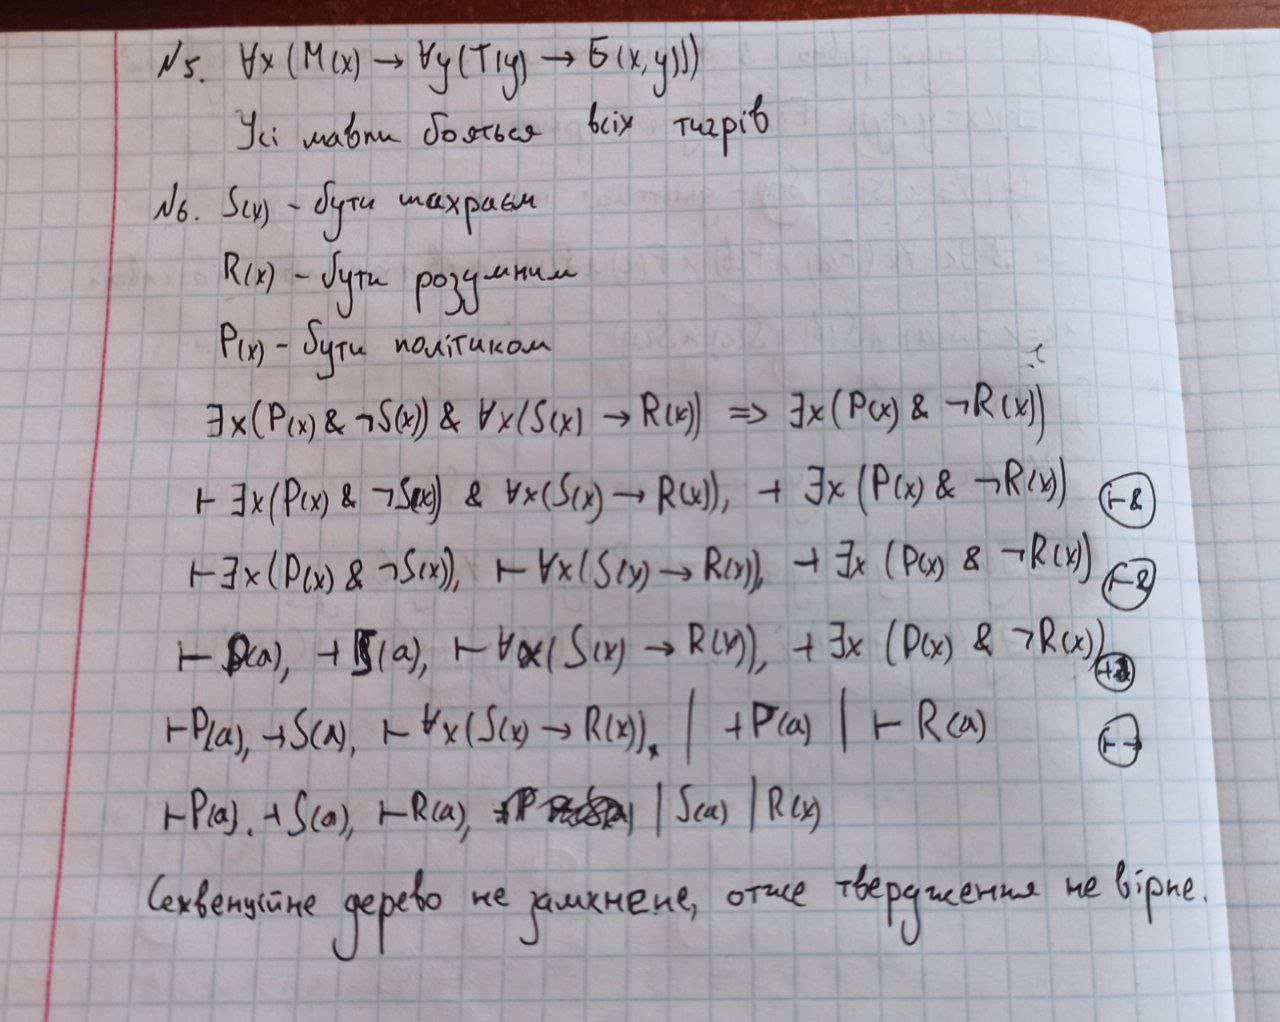 N5. ∀x (M(x) → ∀y (T(y) → Б(x, y)))
Усі мавпи бояться всіх тигрів
N6. S(x) - бути шахраєм
R(x) - бути розумним
P(x) - бути політиком
∃x (P(x) & ¬S(x)) & ∀x (S(x) → R(x)) => ∃x (P(x) & ¬R(x))
⊢ ∃x (P(x) & ¬S(x)) & ∀x (S(x) → R(x)), ⊣ ∃x (P(x) & ¬R(x)) ⊢&
⊢ ∃x (P(x) & ¬S(x)), ⊢ ∀x (S(x) → R(x)), ⊣ ∃x (P(x) & ¬R(x)) ⊢&
⊢ P(a), ⊣ S(a), ⊢ ∀x (S(x) → R(x)), ⊣ ∃x (P(x) & ¬R(x))
⊢ P(a), ⊣ S(a), ⊢ ∀x (S(x) → R(x)), | ⊣ P(a) | ⊢ R(a) ⊢→
⊢ P(a), ⊣ S(a), ⊢ R(a), | S(a) | R(x)
Секвенційне дерево не замкнене, отже твердження не вірне.